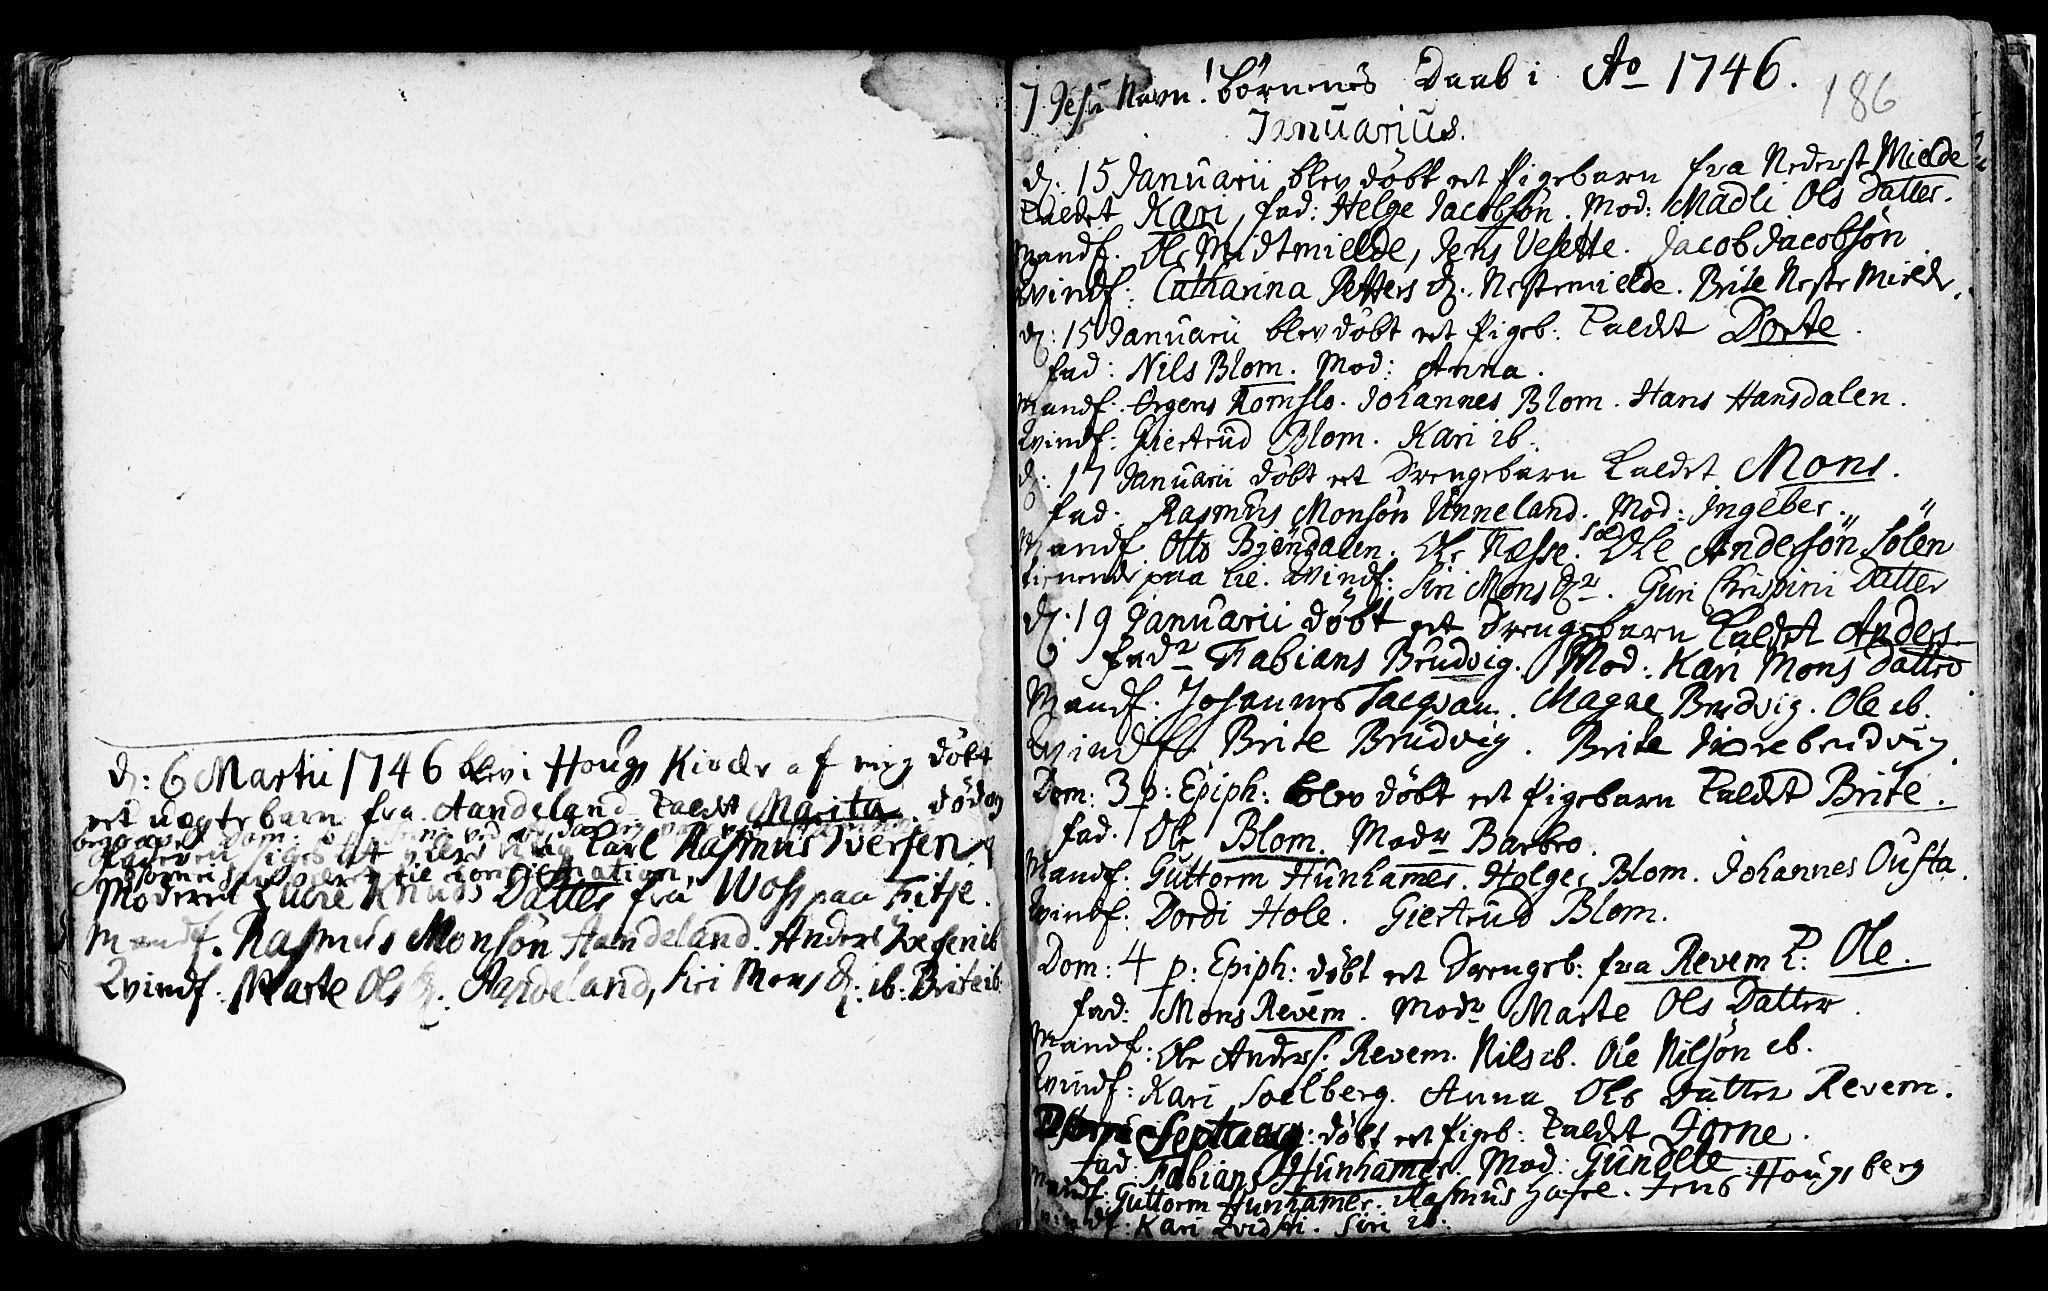 d: 6 Martii 1746 blev i Hougs Kircke af mig döbt
et uægte barn fra Aandeland kaldet Marita. död og
begravet Dom:
Faderen siges at være Karl Rasmus Iversen
til confirmation
Moderen Knuds Datter fra Woss paa Fitje.
Mandf. Rasmus Monsön Handeland. Anders Iversen ib
Qvindf: Marte Ols d: Aandeland, Siri Mons d: ib: Brite ib.
J Jesu Navn! börnenes Daab i Ao 1746.
186
Januarius.
d: 15 Januarii blev döbt et Pigebarn fra Nederst Mielde
kaldet Kari, fad: Helge Jacobsön. Mod: Madli Ols Datter.
Mandf. Ole Midtmielde, Jens Vesette. Jacob Jacobsön.
Qvindf: Catharina Petters d: Nestemielde. Brite Neste Mielde.
d: 15 Januarii blev döbt et Pigeb: kaldet Dorte.
fad: Nils Blom. Mod: Anna.
Mandf. Ørgens Romslo. Johannes Blom. Hans Hansdalen.
Qvindf: Giertrud Blom. Kari ib.
d: 17 Januarii döbt et Drengebarn kaldet Mons.
fad. Rasmus Monsön Vinneland. Mod: Ingeber.
Mandf. Otto Biöndalen. Ole Næsse. Sold Ole Andersön Sölen
tienende paa Lie. Qvindf: Siri Mons dr. Guri Chrispini Datter
d: 19 Januarii döbt et Drengebarn kaldet Anders
fadr Fabians Brudvig. Mod: Kari Mons Datter
Mandf. Johannes Tacqvam. Magne Brudvig. Ole ib.
Qvindf: Brite Brudvig. Brite brudvig.
Dom: 3 p: Epiph: blev döbt et Pigebarn kaldet Brite.
fad. Ole Blom. Modr Barbro.
Mandf: Guttorm Hunhamer. Holger Blom. Johannes Ousta.
Qvindf: Dordi Hole. Giertrud Blom.
Dom: 4 p: Epiph: döbt et Drengeb: fra Revem k: Ole.
fad: Mons Revem. Modr Marte Ols Datter.
Mandf: Ole Anders. Revem. Nils ib. Ole Nilsön ib.
Qvindf: Kari Soelberg. Anna Ols Datter Revem.
Septuag: döbt et Pigeb: kaldet Jorne.
fad: Fabians Hunhamer. Mod: Gunilde
Mandf: Guttorm Hunhamer. Rasmus Jens Hougsberg
Qvindf. Kari Qvidsti. Siri ib.